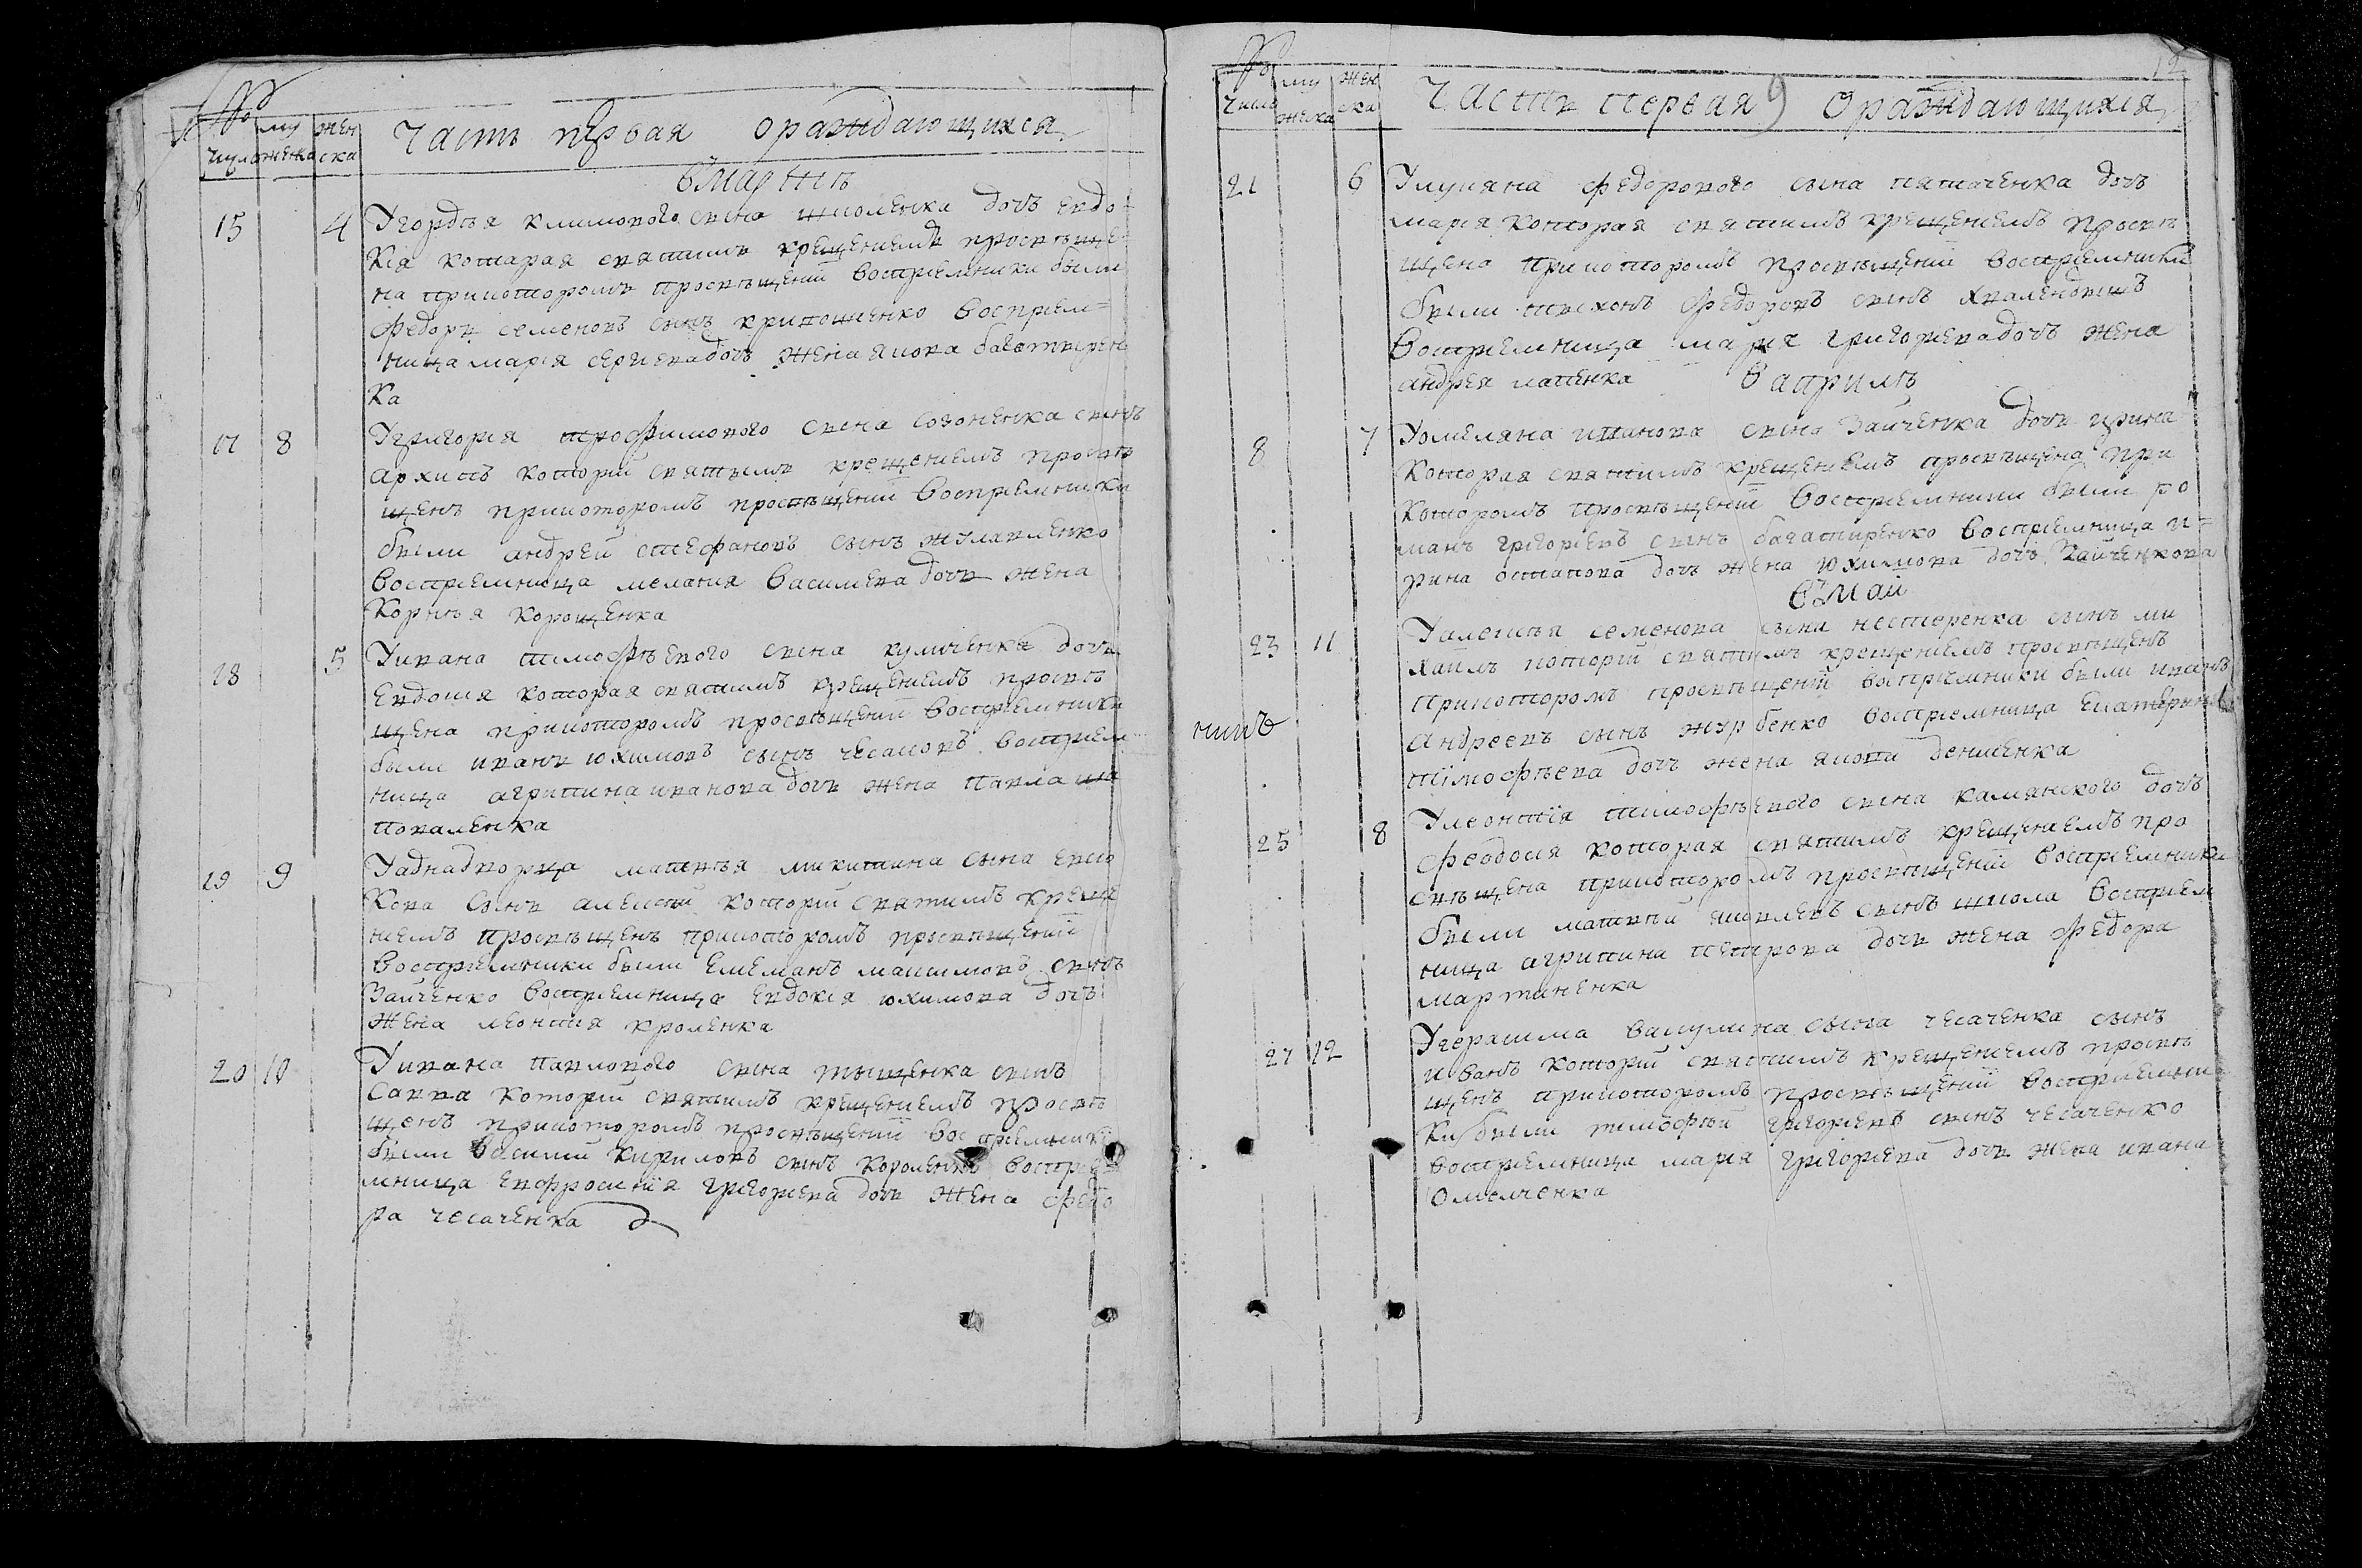 № числ мужска женска Часть первая оражтдающихся
Вмартѣ
15 4 Угордѣя климового сына школенка дочь евдо-
кія котарая святимъ крещениемъ просвѣще-
на прикоторомъ просвѣщений восприемники были
федоръ семеновъ сынъ кривошиенко восприем-
ница марія сергиева дочь жена якова багатирен
ка
17 8 Угригорія трофимового сына созоненка сынъ
архипъ который святымъ крещениемъ просвѣ
щенъ прикоторомъ просвѣщений восприемники
были андрей стефановъ сынъ журавленко
восприемница мелания василиева дочь жена
корнѣя корощенка
18 5 Уивана тимофѣевого сына куличенка дочь
Евдокия которая святимъ крещениемъ просвѣ
щена прикоторомъ просвѣщений восприемники
были иванъ юхимовъ сынъ чесаковъ восприем
ница агрипина иванова дочь жена павла ша
поваленка
19 9 Уаднадворца матвѣя микитина сына
кова сынъ алексий которий святимъ креще
ниемъ просвѣщенъ прикоторомъ просвѣщений
восприемники были Емелианъ максимовъ сынъ
Зайченко восприемница Евдокія юхимова дочь
жена леонтия кроленка
20 10 Уивана павлового сына тыщенка сынъ
савва которий святимъ крещениемъ просвѣ
щенъ прикоторомъ просвѣщений восприемники
были василий кириловъ сынъ короленко восприе
мница Евфросиния григориева дочь жена федо
ра чесаченка
12
№ числ мужеска женска Часть первая 9 оражтдающихся
21 6 Улукяна федорового сына пятаченка дочь
марія которая святимъ крещениемъ просвѣ
щена прикоторомъ просвѣщений восприемники
были тихонъ федоровъ сынъ
восприемница мария григориева дочь жена
андрея лапенка Вaприлѣ
8 7 Уомеляна иванова сына Зайченка дочь ирина
которая святимъ крещениемъ просвѣщена при
которомъ просвѣщений восприемники были ро
манъ григориевъ сынъ багатиренко восприемница и-
рина остапова дочь жена юхимова дочь Зайченкова
Вмай
23 11 Уалексѣя семенова сына нестеренка сынъ ми
хаилъ которий святимъ крещениемъ просвѣщенъ
прикоторомъ просвѣщений восприемники были иванъ
андреевъ сынъ журбенко восприемница Екатерина
тімофѣева дочь жена якова денисенка
25 8 Улеонтія тимофѣевого сына камянского дочь
феодосия которая святимъ крещениемъ про
свѣщена прикоторомъ просвѣщений восприемники
были матвѣй яковлевъ сынъ школа восприем
ница агрипина петрова дочь жена федора
мартиненка
27 12 Угерасима вакулина сына чесаченка сынъ
иванъ которий святимъ крещениемъ просвѣ
щенъ прикоторомъ просвѣщений восприемни
ки были тимофѣй григориевъ сынъ чесаченко
восприемница мария григориева дочь жена ивана
Омелченка